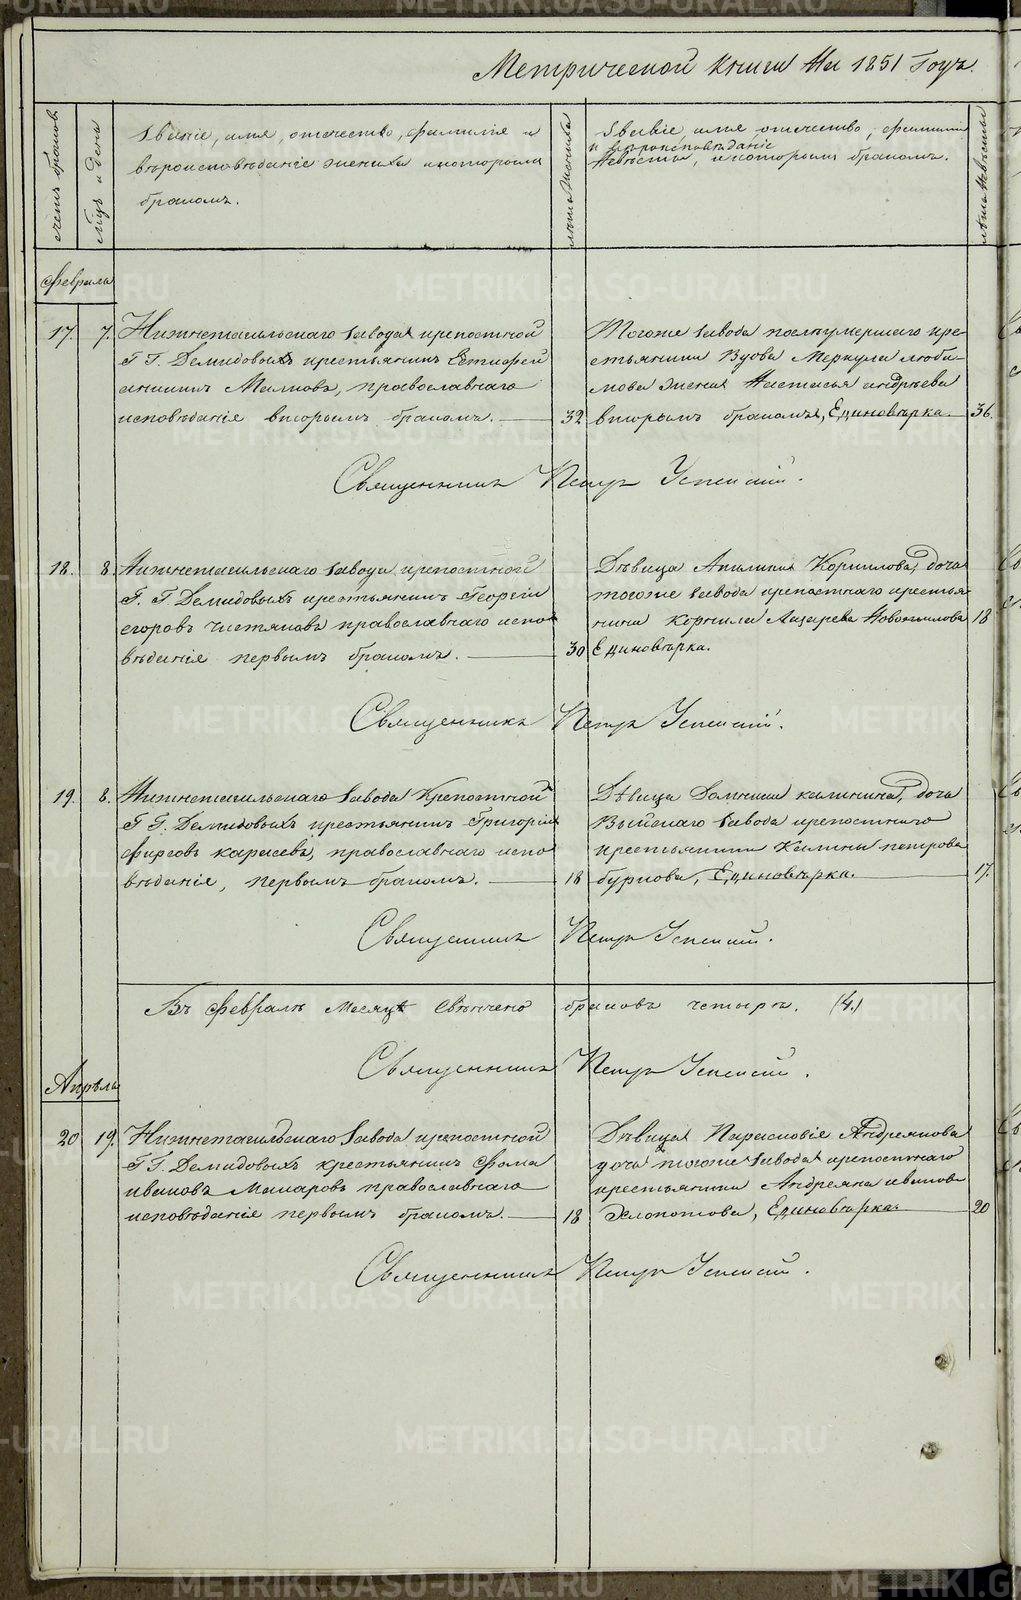 Метрической книги На 1851 Годъ.
счетъ браковъ
мѣсяцъ и день
Званіе, имя, отечество, фамилія и
вѣроисповѣданіе жениха и которымъ
бракомъ.
лѣта жениха
Званіе, имя, отечество, фамилія
и вѣроисповѣданіе
Невѣсты, и которымъ бракомъ.
лѣта Невѣсты
Февраля
17. 7. Нижнетагильскаго завода крепостной
Г. Г. Демидовыхъ крестьянинъ
Малковъ, православнаго
исповѣданіе вторымъ бракомъ. 32
Тогоже завода послѣумершаго кре-
стьянина Вдова Меркула Люби-
мова жена Настасья андрѣева
вторымъ бракомъ, Единовѣрка. 36.
Священникъ Петръ Успенскій.
18. 8. Нижнетагильскаго завода крепостной
Г. Г. Демидовыхъ крестьянинъ Георгій
егоровъ Чистяковъ православнаго испо
вѣданія первымъ бракомъ. 30
Дѣвица Акилина Корнилова, дочь
тогоже завода крепостнаго крестья
нина Корнила Лазарева Новожилова 18
Единовѣрка.
Священникъ Петръ Успенскій.
19. 8. Нижнетагильскаго завода Крепостной
Г. Г. Демидовыхъ крестьянинъ Григорій
фирсовъ карасевъ, православнаго испо
вѣданіе, первымъ бракомъ. 18
Дѣвица Домника калинина, дочь
Выйскаго завода крепостнаго
крестьянина Калины петрова
буркова, Единовѣрка. 17.
Священникъ Петръ Успенскій.
Въ Февралѣ Месяцѣ Свѣнчено браковъ четыре. (4.)
Священникъ Петръ Успенскій.
Апрѣля
20 19. Нижнетагильскаго завода крепостной
Г. Г. Демидовыхъ крестьянинъ Фома
ивановъ Макаровъ православнаго
исповѣданіе первымъ бракомъ. 18
Дѣвица Парасковіе Андреянова
дочь тогоже завода крепостнаго
крестьянина Андреяна иванова
Хлопотова, Единовѣрка 20
Священникъ Петръ Успенскій.
METRIKI.GASO-URAL.RU